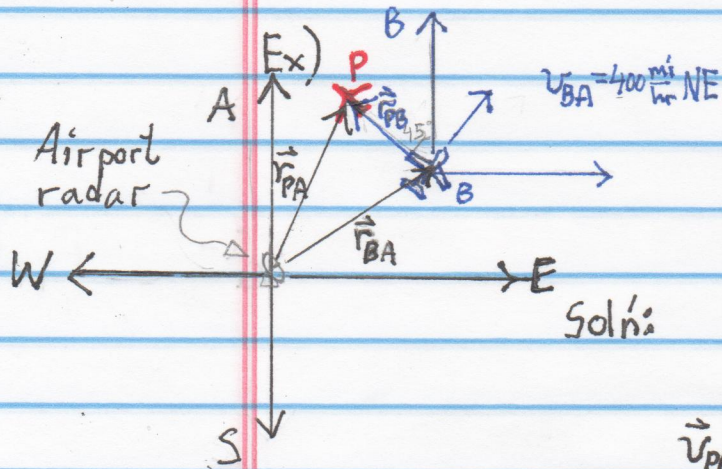 Ex)
B
P
A
v_BA = 400 mi/hr NE
r⃗_PB
45°
Airport
radar
r⃗_PA
B
r⃗_BA
W
E
Soln:
S
v⃗_P